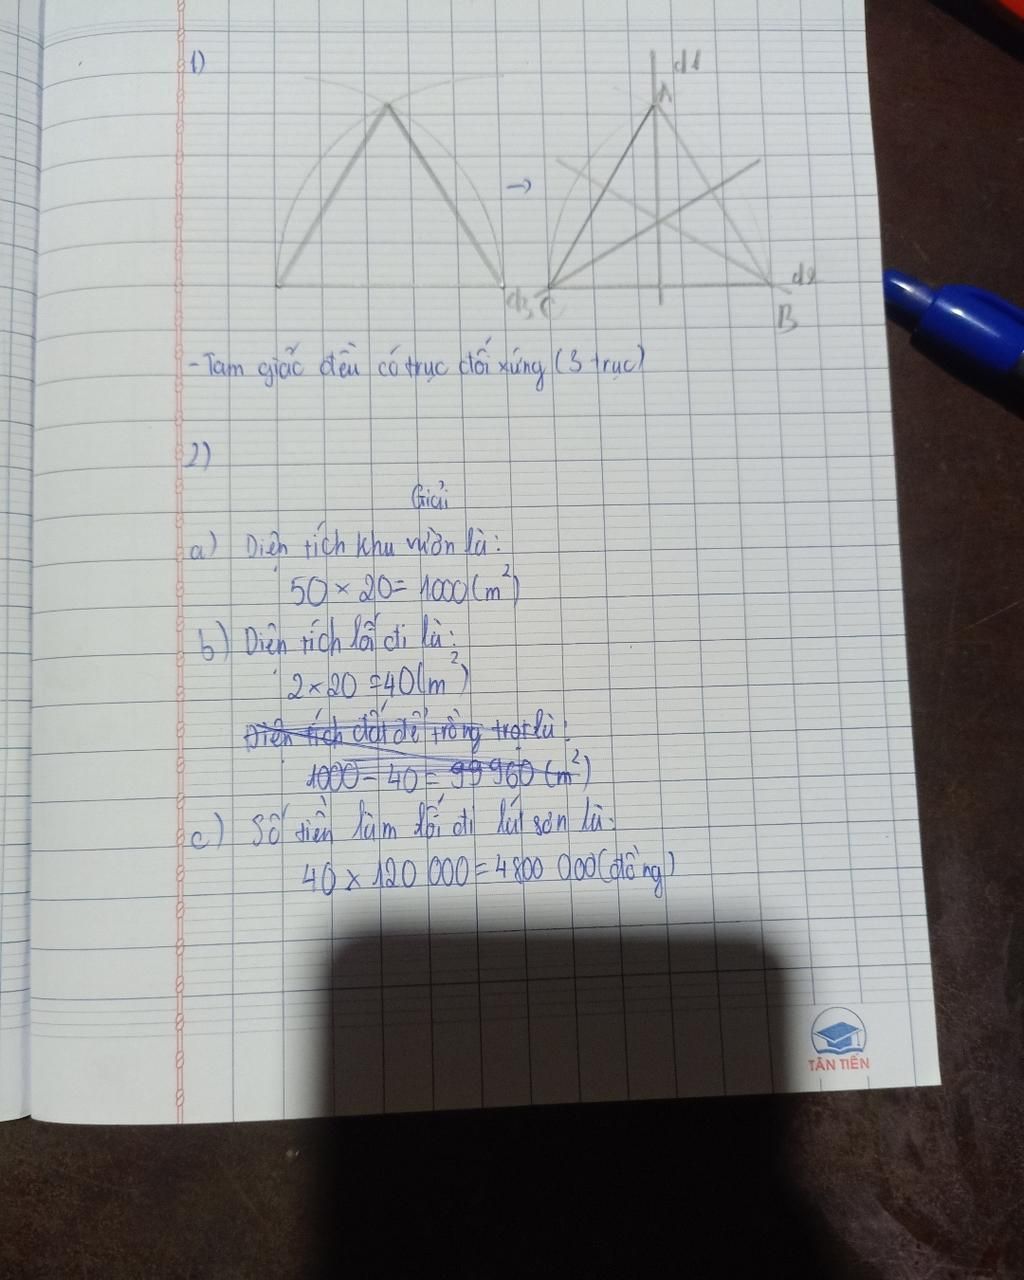 1)
d1
A
→
d3 C
d2
B
- Tam giấc đều có trục đối xứng (3 trục)
2)
Giải
a) Diện tích khu vườn là:
50 × 20 = 1000 (m²)
b) Diện tích lối đi là:
2 × 20 = 40 (m²)
Diện tích đất để trồng trọt là:
1000 - 40 = 99 960 (m²)
c) Số tiền làm lối đi lát sơn là:
40 × 120 000 = 4800 000 (đồng)
TÂN TIẾN